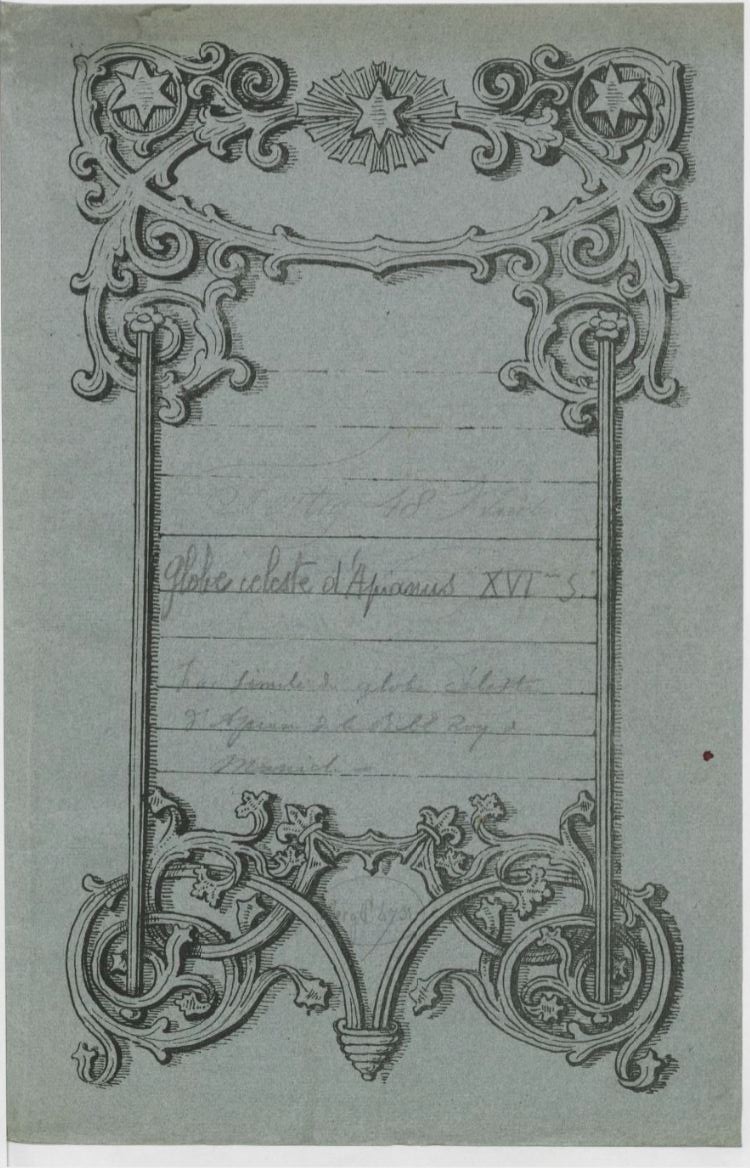 48
Globe celeste d'Apianus XVI<sup>me</sup> S.
Fac simile du globe céleste
d'Apian de la Bibl Roy à
Munich